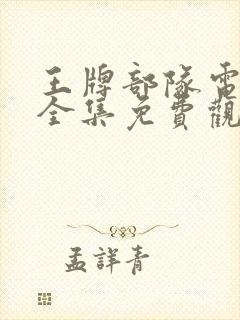 王牌部隊電
全集免費觀
孟詳青